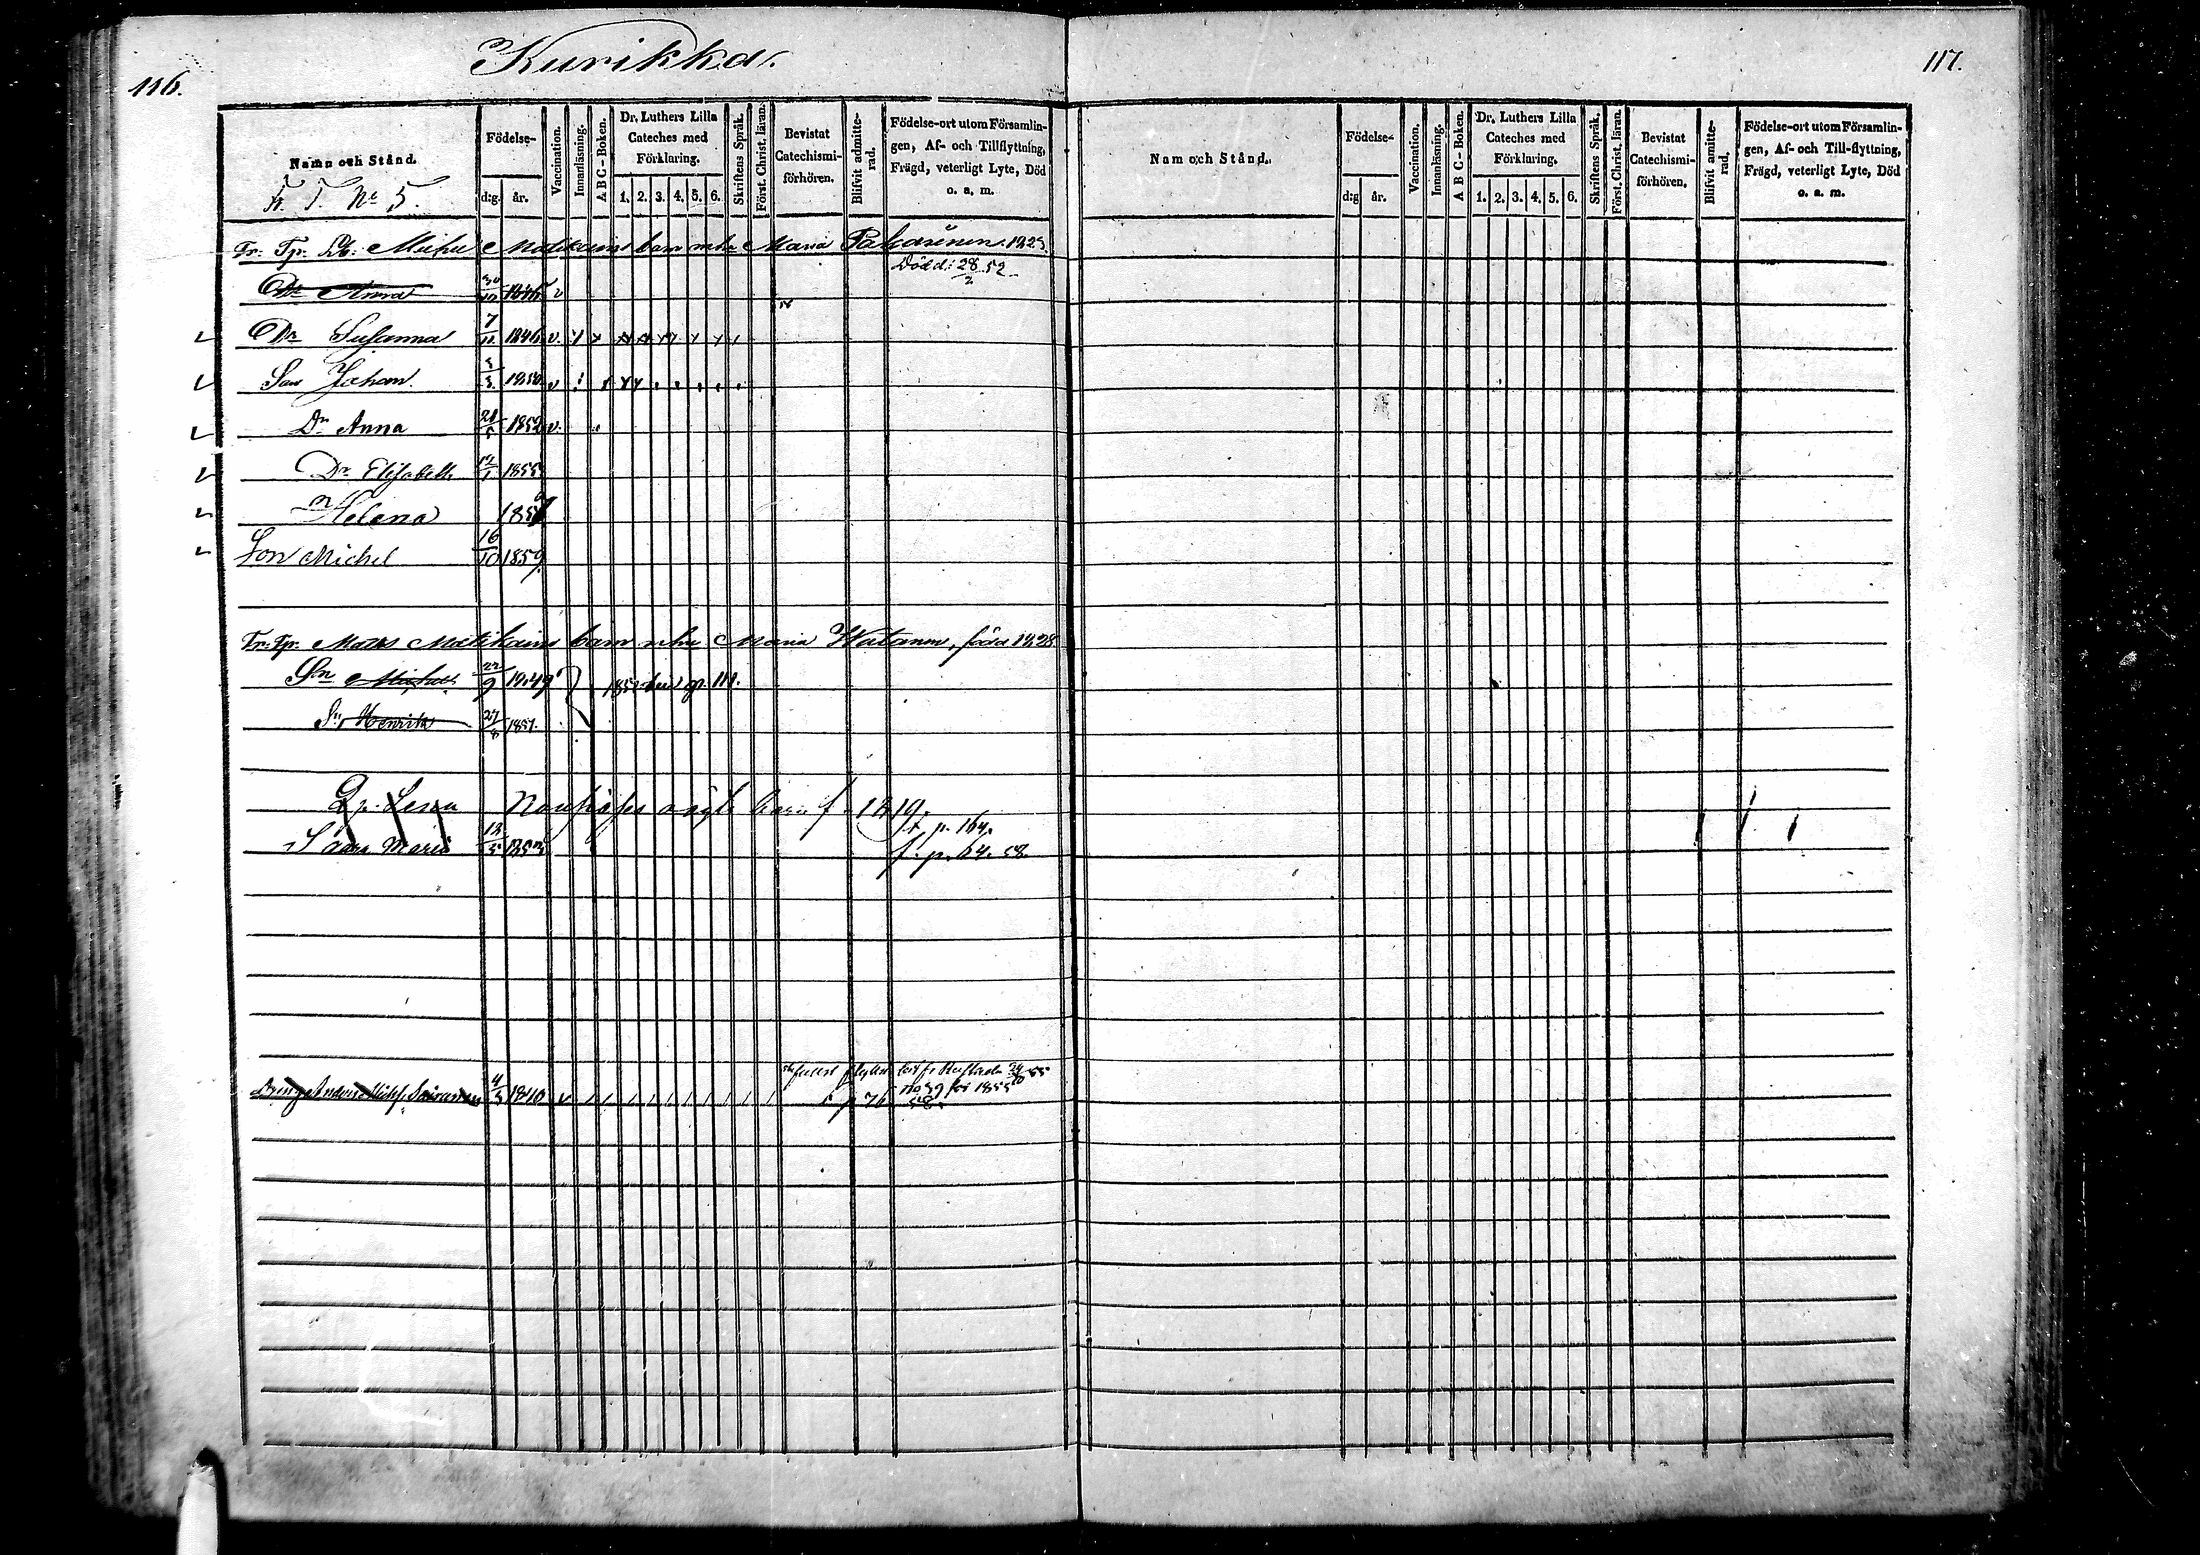 116.
Kurikka.
Namn och Stånd.
Fr. T. No 5.
Födelse-
d:g. år.
Vaccination.
Innanläsning.
A B C - Boken.
Dr. Luthers Lilla
Cateches med
Förklaring.
1. 2. 3. 4. 5. 6.
Skriftens Språk.
Först. Christ. läran.
Bevistat
Catechismi-
förhören.
Blifvit admitte-
rad.
Födelse-ort utom Församlin-
gen, Af- och Tillflyttning,
Frägd, veterligt Lyte, Död
o. a. m.
Fr. Tp. Matikains barn mhu Maria 1823.
Dr Anna 30/10 1845 v Död d: 28/2 52
Dr Susanna 7/11 1846 v.
Son Johan. 1850 v
Dr Anna 21/5 1852 v.
Dr Elisabeth 1855
Dr Helena 185
Son Michel 16/10 1859.
Fr. Tp. Matts Matikains barn mhu Maria Watanen, född 1828
Sn Michel 22/9 1849 1852 p. 111.
Sn Henrik 27/8 1851.
Lena oägta barn f. 1819.
f. p. 164.
Saara Maria 12/5 1853 f. p. 64. 58.
flyttn.
Dreng Anders Michelss. 4/3 1840 v p 76 no 39 för 1855
58
117.
Nam och Stånd.
Födelse-
d:g år.
Vaccination.
Innanläsning.
A B C - Boken.
Dr. Luthers Lilla
Cateches med
Förklaring.
1. 2. 3. 4. 5. 6.
Skriftens Språk.
Först. Christ. läran.
Bevistat
Catechismi-
förhören.
Blifvit amitte-
rad.
Födelse-ort utom Församlin-
gen, Af- och Till-flyttning,
Frägd, veterligt Lyte, Död
o. a. m.